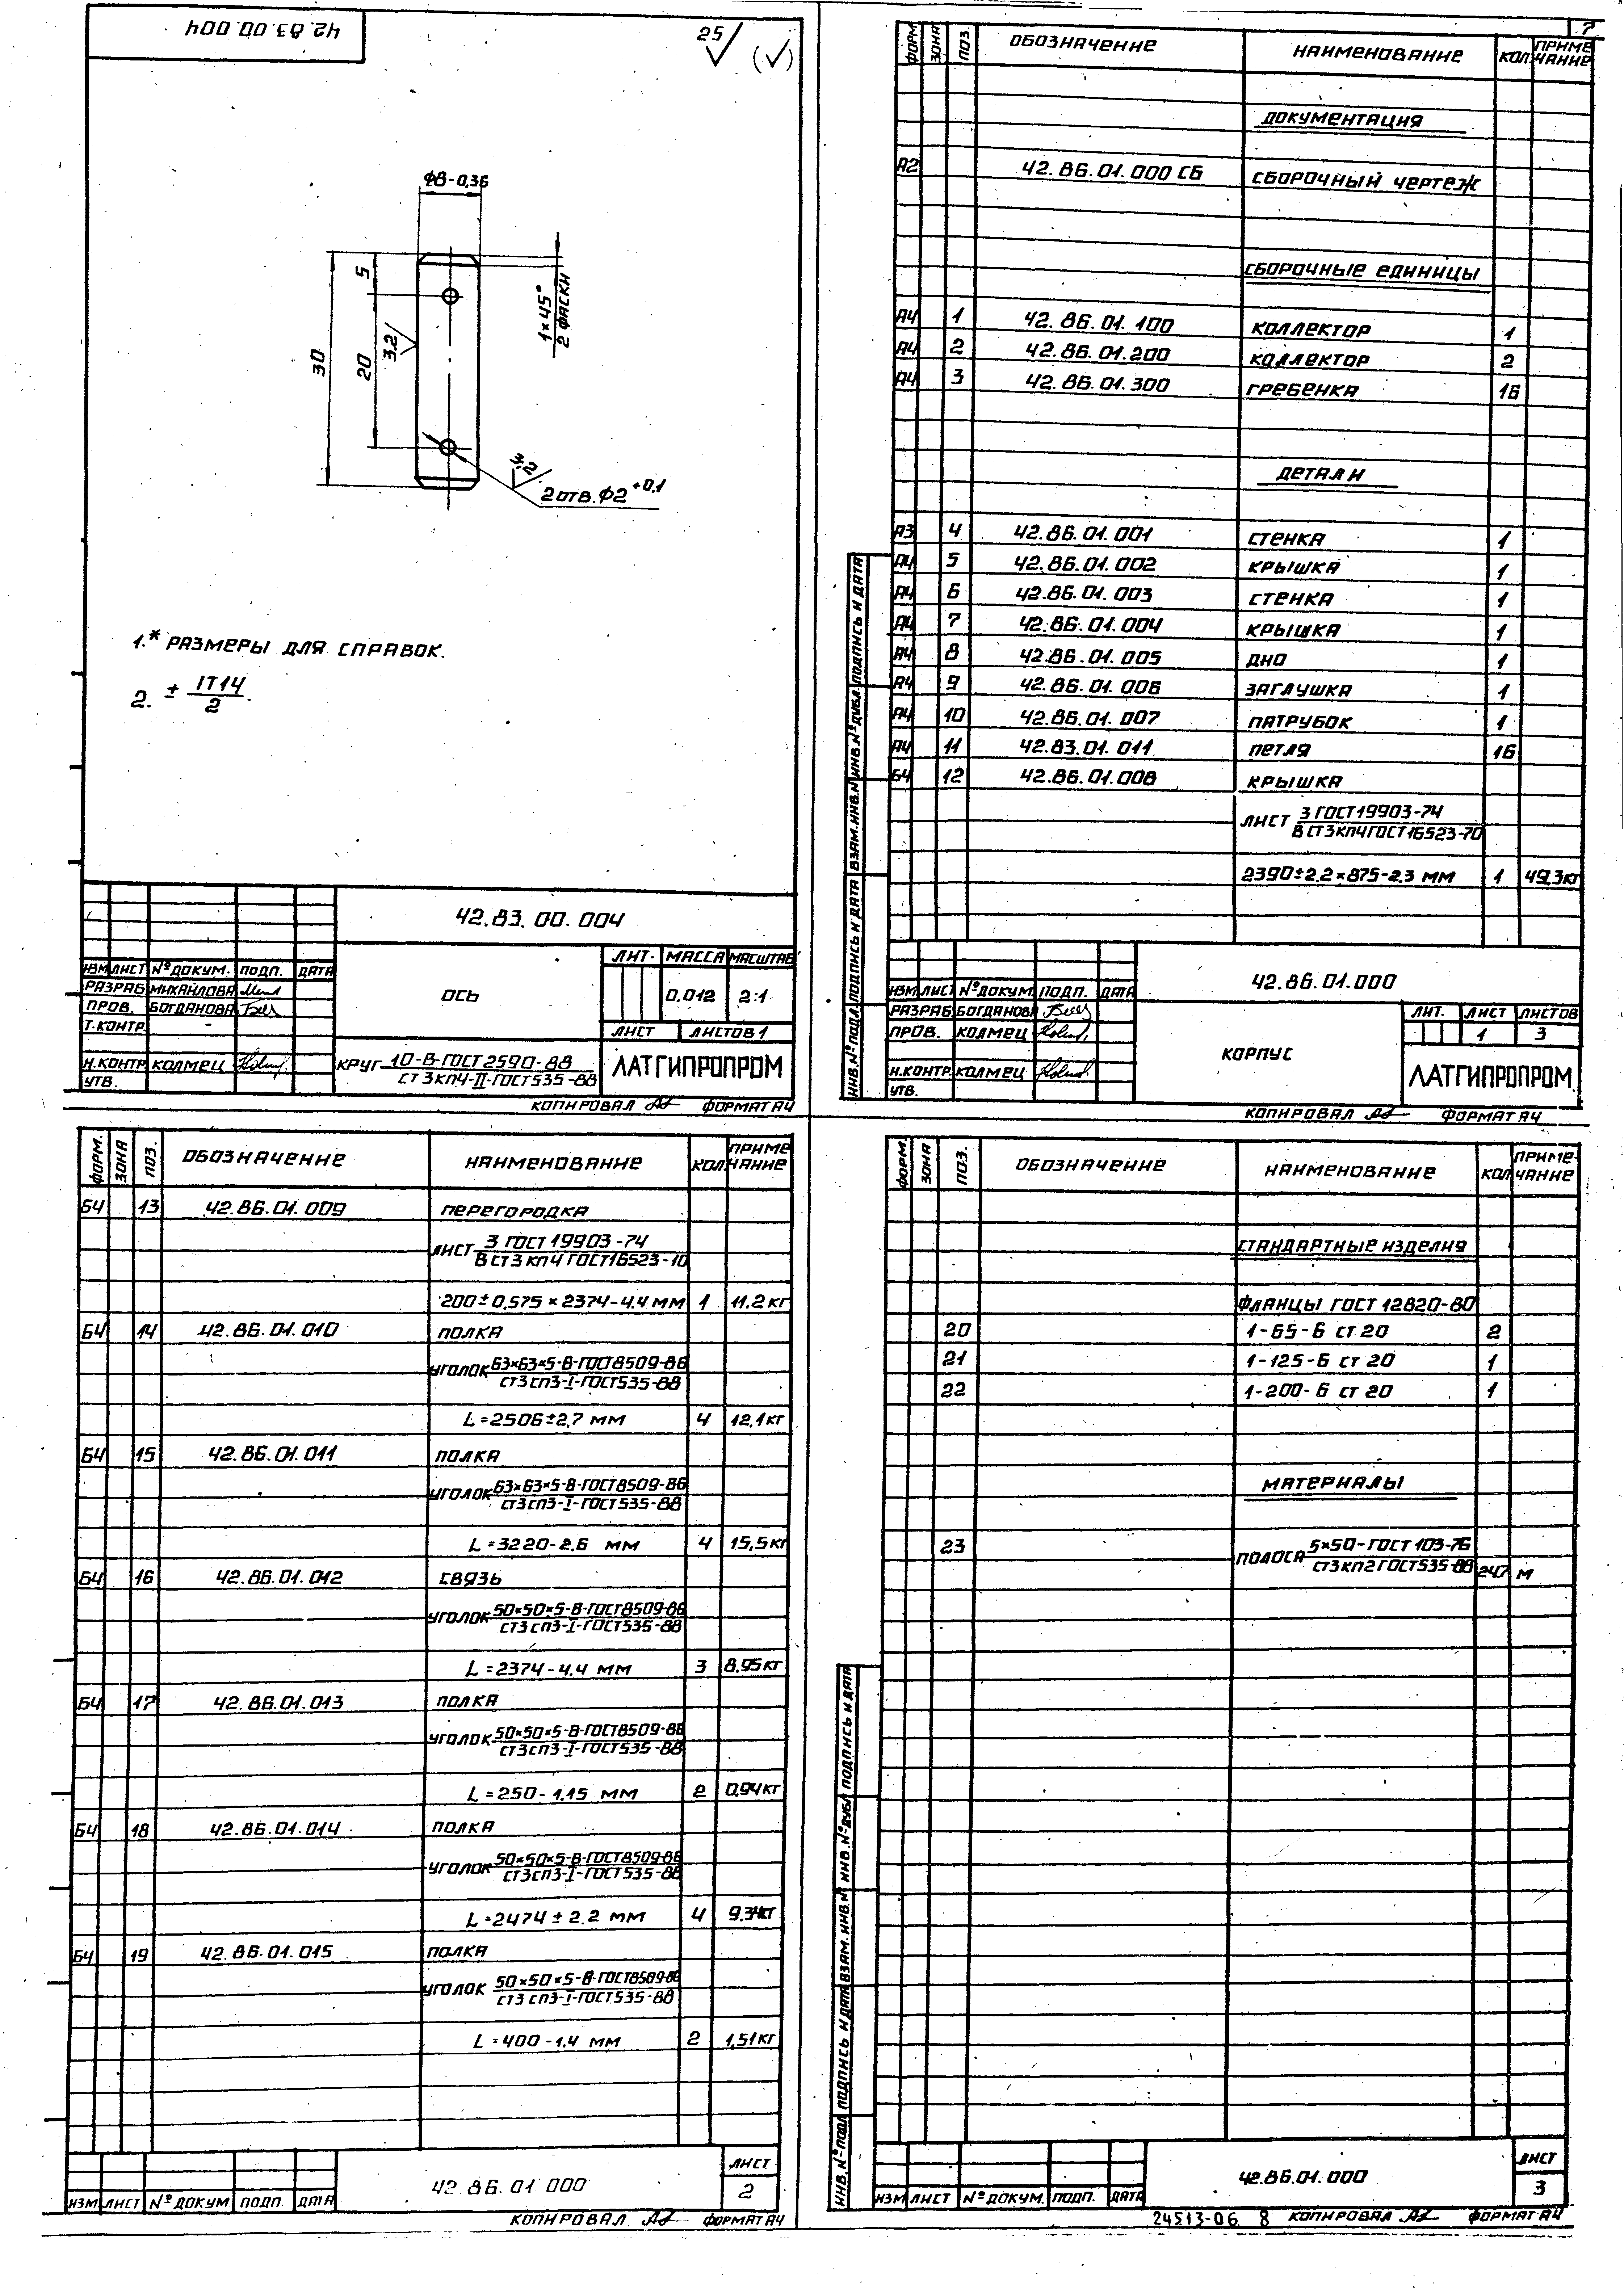 42.83.00.004
25 (√)
Ф8-0,36
5
30
20
3,2
1×45°
2 ФАСКИ
3,2
2 ОТВ. Ф2 +0,1
1.* РАЗМЕРЫ ДЛЯ СПРАВОК.
2. ± IT14/2.
42.83.00.004
ИЗМ ЛИСТ № ДОКУМ. ПОДП. ДАТА
РАЗРАБ МИХАЙЛОВА
ПРОВ. БОГДАНОВА
Т.КОНТР.
Н.КОНТР КОЛМЕЦ
УТВ.
ОСЬ
ЛИТ. МАССА МАСШТАБ
0.012 2:1
ЛИСТ ЛИСТОВ 1
КРУГ 10-В-ГОСТ 2590-88
СТ 3КП4-II-ГОСТ 535-88
ЛАТГИПРОПРОМ
КОПИРОВАЛ ФОРМАТ А4
7
ФОРМ ЗОНА ПОЗ. ОБОЗНАЧЕНИЕ НАИМЕНОВАНИЕ КОЛ. ПРИМЕЧАНИЕ
ДОКУМЕНТАЦИЯ
А2 42.86.01.000 СБ СБОРОЧНЫЙ ЧЕРТЕЖ
СБОРОЧНЫЕ ЕДИНИЦЫ
А4 1 42.86.01.100 КОЛЛЕКТОР 1
А4 2 42.86.01.200 КОЛЛЕКТОР 2
А4 3 42.86.01.300 ГРЕБЕНКА 16
ДЕТАЛИ
А3 4 42.86.01.001 СТЕНКА 1
А4 5 42.86.01.002 КРЫШКА 1
А4 6 42.86.01.003 СТЕНКА 1
А4 7 42.86.01.004 КРЫШКА 1
А4 8 42.86.01.005 ДНО 1
А4 9 42.86.01.006 ЗАГЛУШКА 1
А4 10 42.86.01.007 ПАТРУБОК 1
А4 11 42.83.01.011 ПЕТЛЯ 16
БЧ 12 42.86.01.008 КРЫШКА
ЛИСТ 3 ГОСТ 19903-74
В СТ 3КП4 ГОСТ 16523-70
2390±2,2×875-2,3 ММ 1 49,3КГ
ИНВ.№ПОДЛ. ПОДПИСЬ И ДАТА ВЗАМ.ИНВ.№ ИНВ.№ДУБЛ. ПОДПИСЬ И ДАТА
42.86.01.000
ИЗМ ЛИСТ № ДОКУМ. ПОДП. ДАТА
РАЗРАБ БОГДАНОВА
ПРОВ. КОЛМЕЦ
Н.КОНТР. КОЛМЕЦ
УТВ.
КОРПУС
ЛИТ. ЛИСТ ЛИСТОВ
1 3
ЛАТГИПРОПРОМ
КОПИРОВАЛ ФОРМАТ А4
ФОРМ. ЗОНА ПОЗ. ОБОЗНАЧЕНИЕ НАИМЕНОВАНИЕ КОЛ. ПРИМЕЧАНИЕ
БЧ 13 42.86.01.009 ПЕРЕГОРОДКА
ЛИСТ 3 ГОСТ 19903-74
В СТ 3 КП4 ГОСТ 16523-10
200±0,575×2374-4,4 ММ 1 11,2 КГ
БЧ 14 42.86.01.010 ПОЛКА
УГОЛОК 63×63×5-В-ГОСТ 8509-86
СТ3СП3-I-ГОСТ 535-88
L=2506±2,7 ММ 4 12,1КГ
БЧ 15 42.86.01.011 ПОЛКА
УГОЛОК 63×63×5-В-ГОСТ 8509-86
СТ3СП3-I-ГОСТ 535-88
L=3220-2,6 ММ 4 15,5КГ
БЧ 16 42.86.01.012 СВЯЗЬ
УГОЛОК 50×50×5-В-ГОСТ 8509-86
СТ3СП3-I-ГОСТ 535-88
L=2374-4,4 ММ 3 8,95КГ
БЧ 17 42.86.01.013 ПОЛКА
УГОЛОК 50×50×5-В-ГОСТ 8509-86
СТ3СП3-I-ГОСТ 535-88
L=250-1,15 ММ 2 0,94КГ
БЧ 18 42.86.01.014 ПОЛКА
УГОЛОК 50×50×5-В-ГОСТ 8509-86
СТ3СП3-I-ГОСТ 535-88
L=2474±2,2 ММ 4 9,34КГ
БЧ 19 42.86.01.015 ПОЛКА
УГОЛОК 50×50×5-В-ГОСТ 8509-86
СТ3 СП3-I-ГОСТ 535-88
L=400-1,4 ММ 2 1,51КГ
42.86.01.000
ЛИСТ
2
ИЗМ ЛИСТ № ДОКУМ ПОДП. ДАТА
КОПИРОВАЛ ФОРМАТ А4
ФОРМ. ЗОНА ПОЗ. ОБОЗНАЧЕНИЕ НАИМЕНОВАНИЕ КОЛ ПРИМЕ-ЧАНИЕ
СТАНДАРТНЫЕ ИЗДЕЛИЯ
ФЛАНЦЫ ГОСТ 12820-80
20 1-65-6 СТ 20 2
21 1-125-6 СТ 20 1
22 1-200-6 СТ 20 1
МАТЕРИАЛЫ
23 ПОЛОСА 5×50-ГОСТ 103-76
СТ3КП2 ГОСТ 535-88 247 М
ИНВ.№ПОДЛ. ПОДПИСЬ И ДАТА ВЗАМ. ИНВ.№ ИНВ.№ДУБЛ ПОДПИСЬ И ДАТА
42.86.01.000
ЛИСТ
3
ИЗМ ЛИСТ № ДОКУМ. ПОДП. ДАТА
24513-06 8 КОПИРОВАЛ ФОРМАТ А4